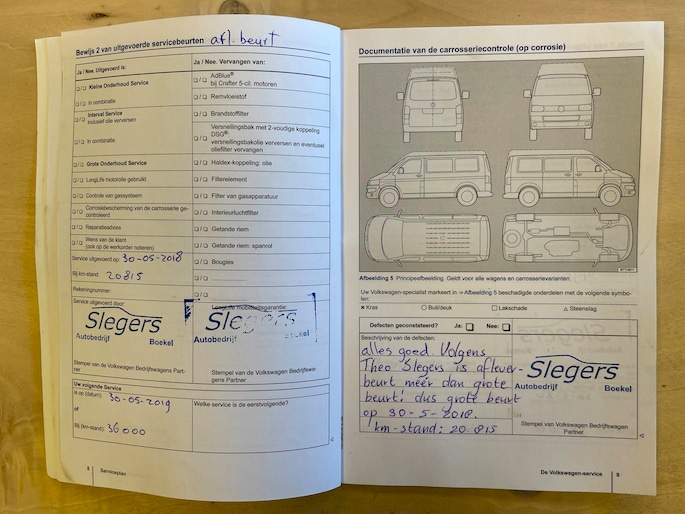 Bewijs 2 van uitgevoerde servicebeurten afl. beurt
Ja / Nee. Uitgevoerd is:
Ja / Nee. Vervangen van:
Kleine Onderhoud Service
In combinatie
Interval Service
Inclusief olie verversen
In combinatie
Grote Onderhoud Service
LongLife motorolie gebruikt
Controle van gassysteem
Corrosiebescherming van de carrosserie ge-
controleerd
Reparatieadvies
Wens van de klant
(ook op de werkorder noteren)
AdBlue®
bij Crafter 5-cil. motoren
Remvloeistof
Brandstoffilter
Versnellingsbak met 2-voudige koppeling
DSG®:
versnellingsbakolie verversen en eventueel
oliefilter vervangen
Haldex-koppeling: olie
Filterelement
Filter van gasapparatuur
Interieurluchtfilter
Getande riem
Getande riem: spanrol
Bougies
Service uitgevoerd op: 30-05-2018
Bij km-stand: 20815
Rekeningnummer:
Service uitgevoerd door:
Slegers
Autobedrijf Boekel
Stempel van de Volkswagen Bedrijfswagen Part-
ner
LongLife mobiliteitsgarantie:
Slegers
Autobedrijf
Stempel van de Volkswagen Bedrijfswa-
gen Partner
Uw volgende Service
is op (datum): 30-05-2019
of
Bij (km-stand): 36000
Welke service is de eerstvolgende?
8 Serviceplan
Documentatie van de carrosseriecontrole (op corrosie)
Afbeelding 5 Principeafbeelding. Geldt voor alle wagens en carrosserievarianten.
Uw Volkswagen-specialist markeert in ⇒ Afbeelding 5 beschadigde onderdelen met de volgende symbo-
len:
× Kras ○ Buil/deuk □ Lakschade △ Steenslag
Defecten geconstateerd? Ja: Nee:
Beschrijving van de defecten:
alles goed. Volgens
Theo Slegers is aflever-
beurt meer dan grote
beurt! dus grote beurt
op 30-5-2018.
km-stand: 20.815
Slegers
Autobedrijf Boekel
Stempel van Volkswagen Bedrijfswagen
Partner
De Volkswagen-service 9